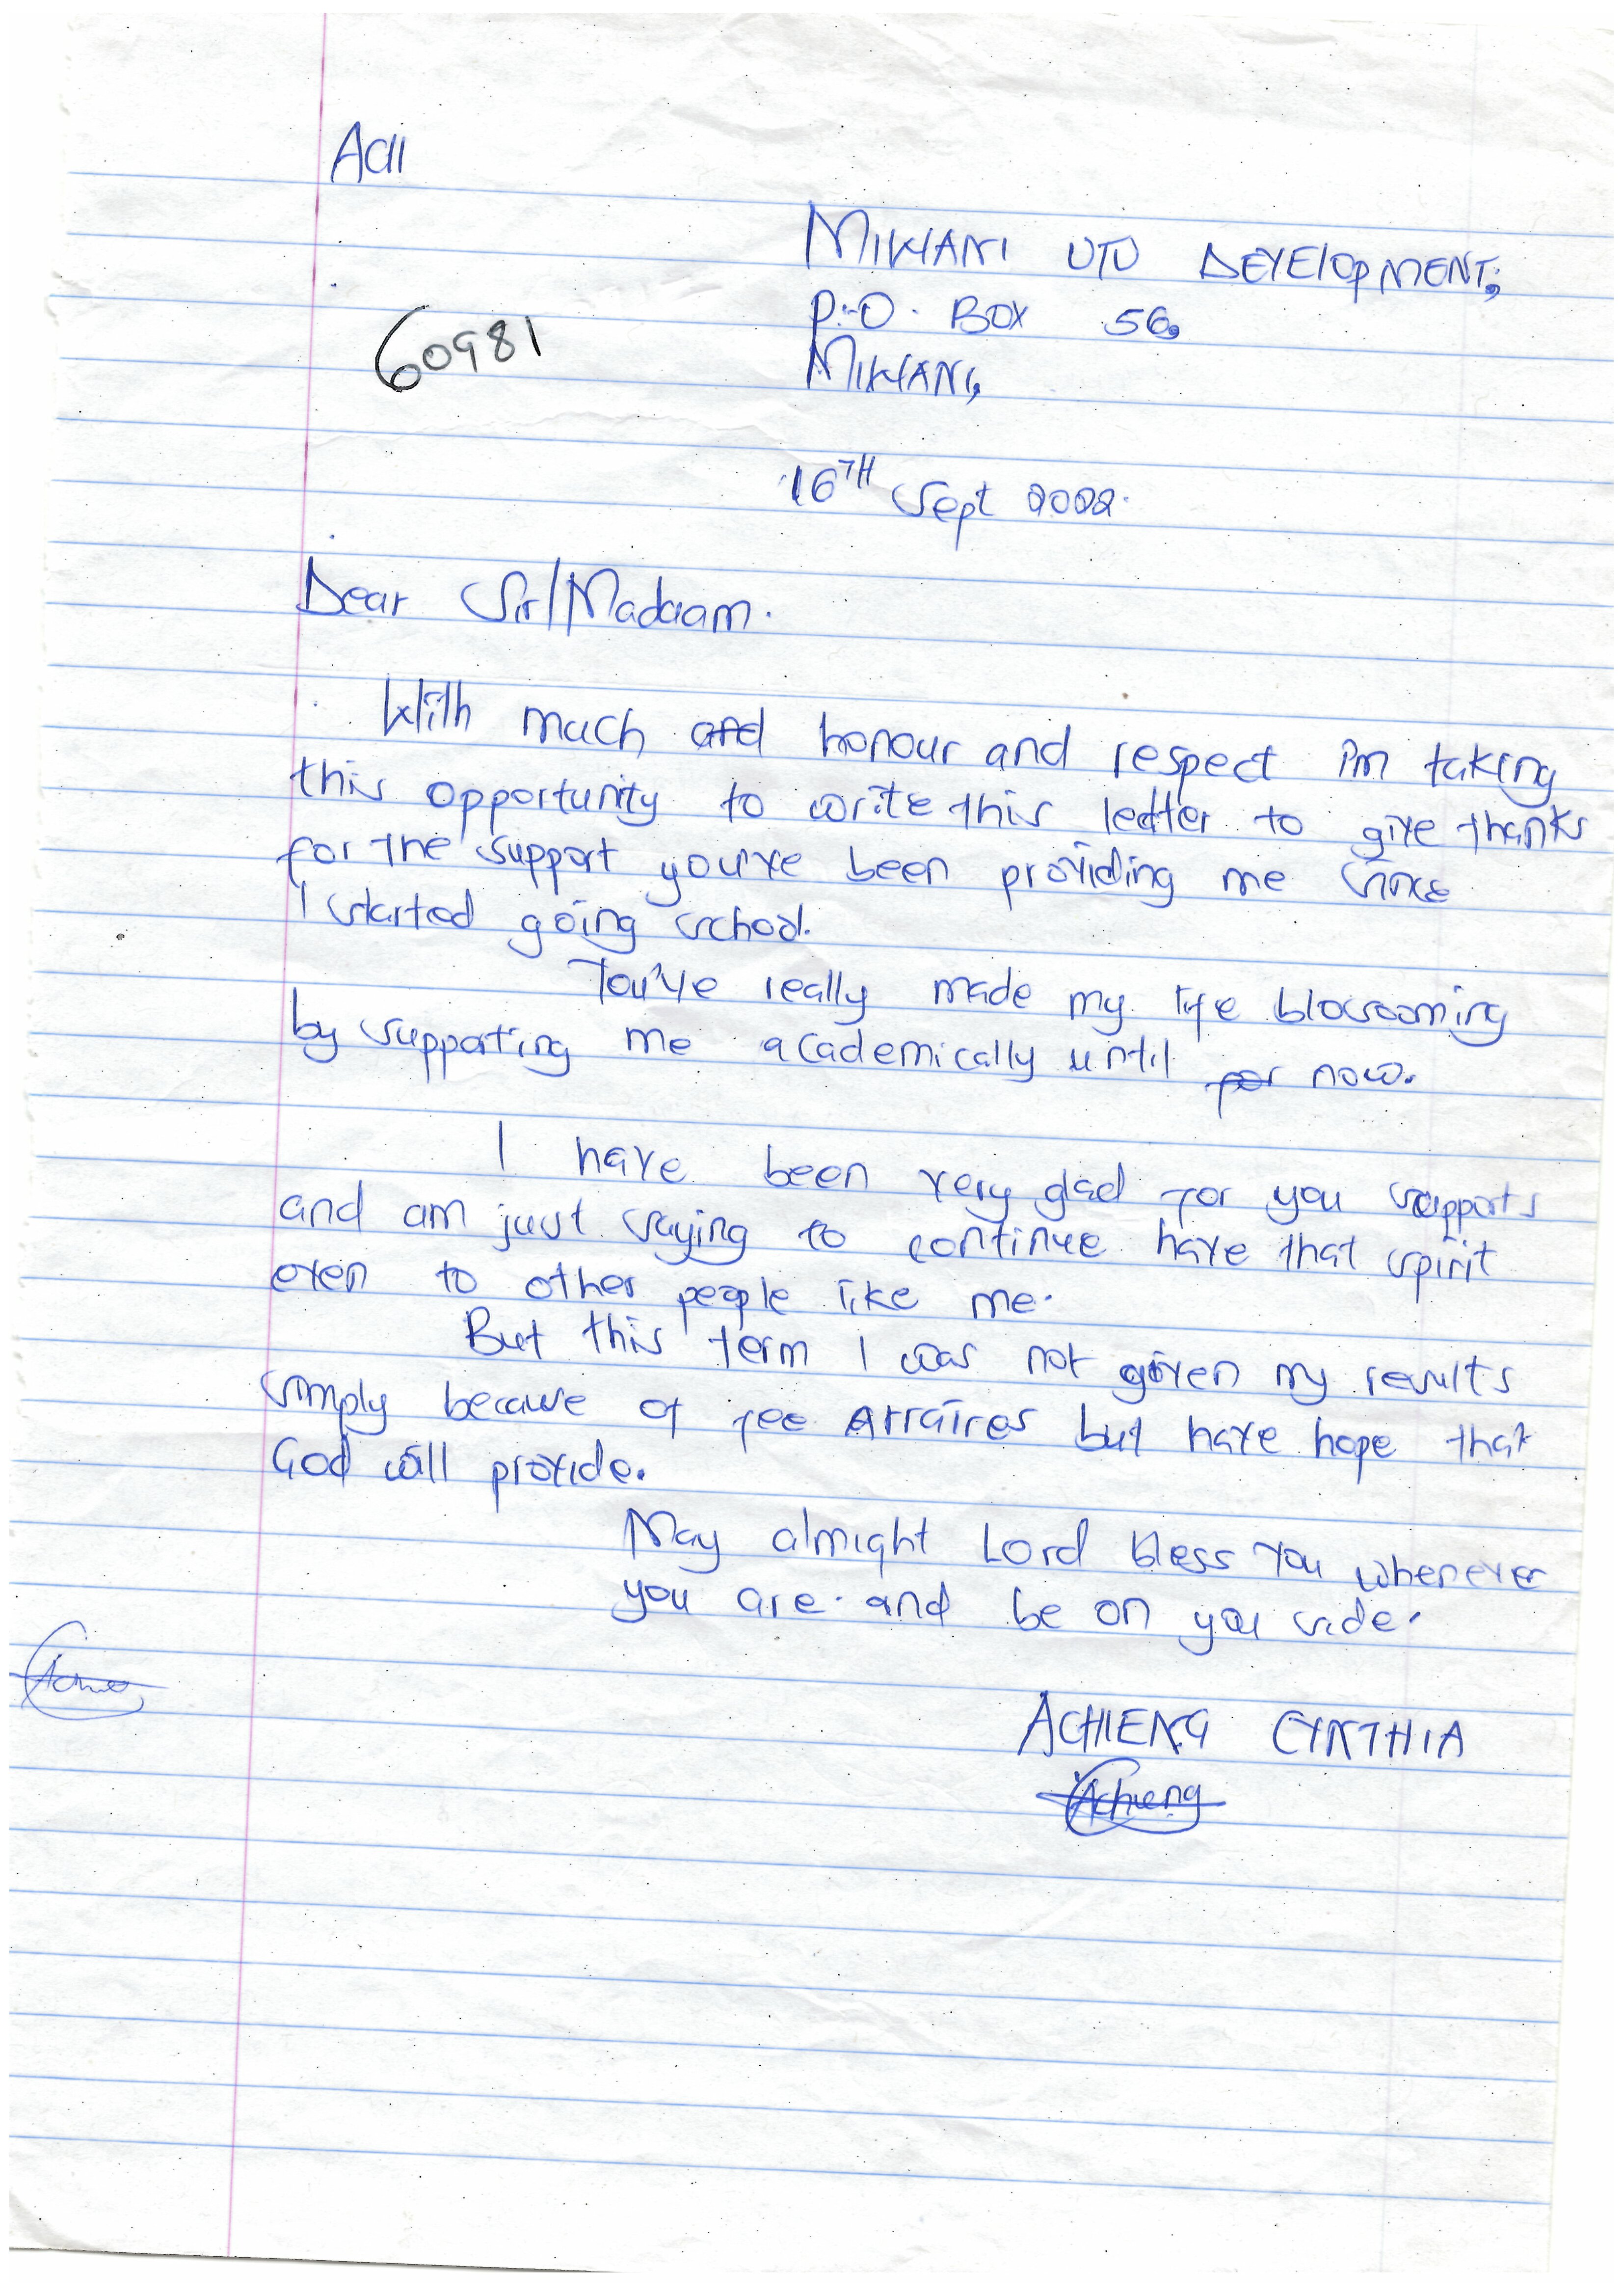 Acll
MIKIANI UTU DEVELOPMENT,
P.O. BOX 56,
MIKIANI,
60981
16TH Sept 2022.
Dear Sir/Madaam.
With much and honour and respect i'm taking
this opportunity to write this letter to give thanks
for the support you've been providing me since
I started going school.
You've really made my life blossoming
by supporting me academically until for now.
I have been very glad for you supports
and am just saying to continue have that spirit
even to other people like me.
But this term I was not given my results
simply because of fee Arraires but have hope that
God will provide.
May almight Lord bless You whenever
you are and be on you side.
ACHIENG CYNTHIA
Achieng